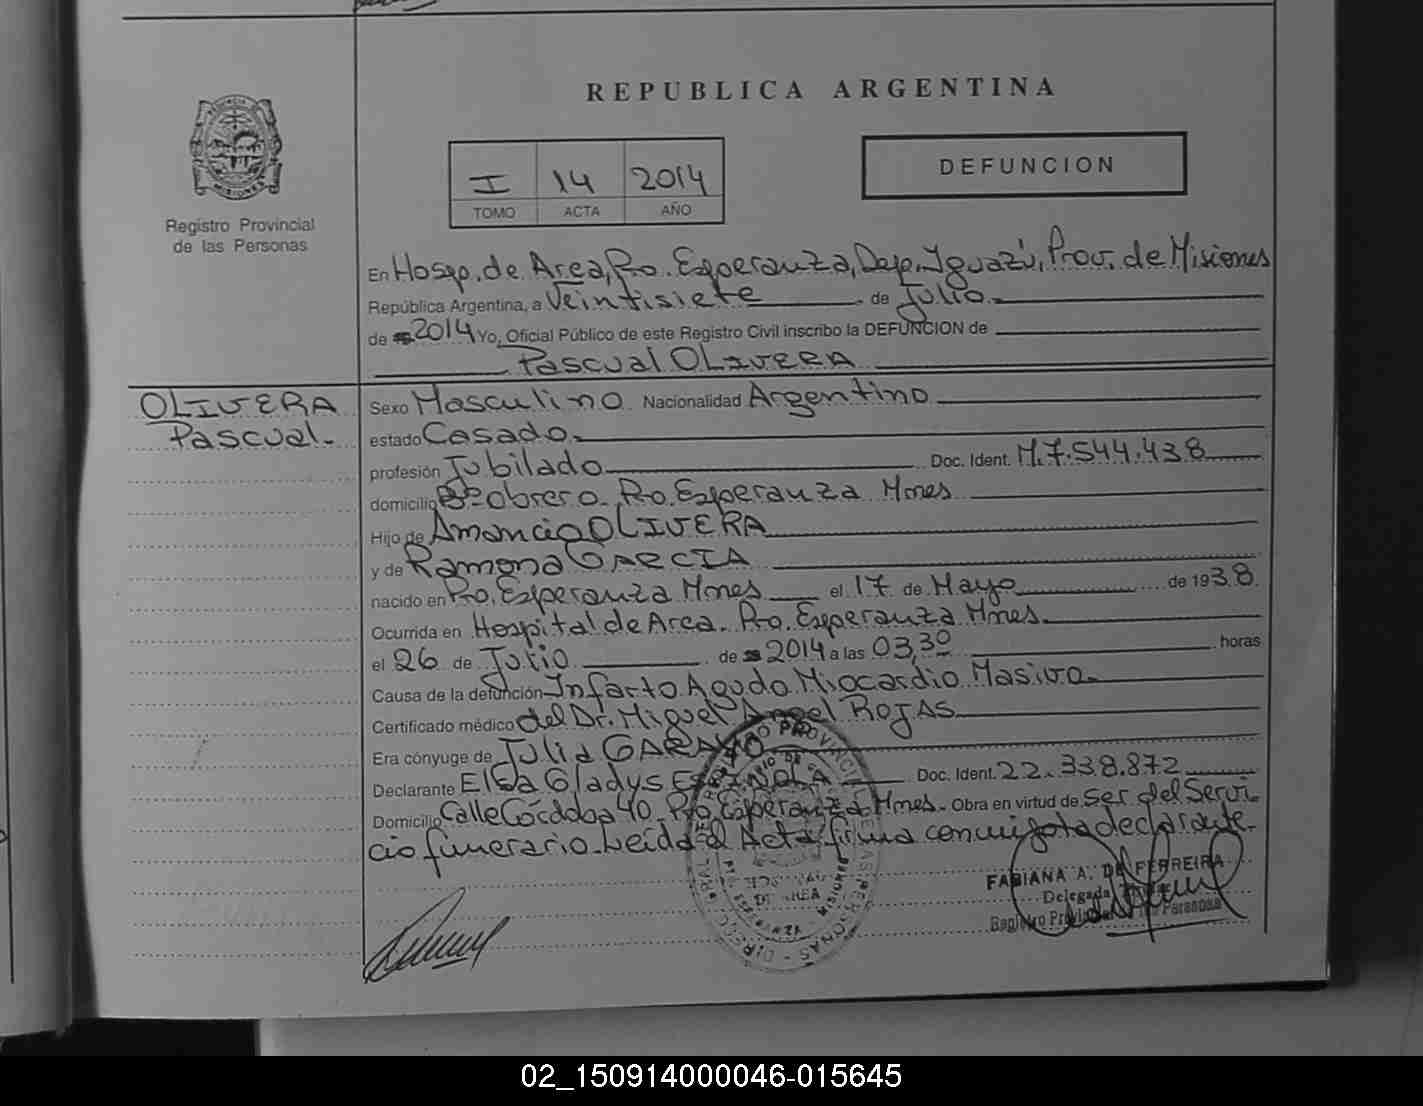 REPUBLICA ARGENTINA
I 14 2014
TOMO ACTA AÑO
DEFUNCION
Registro Provincial
de las Personas
En Hosp. de Area, Pto. Esperanza, Dep. Iguazú, Prov. de Misiones
República Argentina, a Veintisiete de Julio
de 2014 Yo, Oficial Público de este Registro Civil inscribo la DEFUNCION de
Pascual OLIVERA
OLIVERA
Pascual.
Sexo Masculino Nacionalidad Argentino
estado Casado.
profesión Jubilado Doc. Ident. M.7.544.438
domicilio Bº Obrero Pto. Esperanza Mnes
Hijo de Amancio OLIVERA
y de Ramona GARCIA
nacido en Pto. Esperanza Mnes el 17 de Mayo de 1938
Ocurrida en Hospital de Area. Pto. Esperanza Mnes.
el 26 de Julio de 2014 a las 03,30 horas
Causa de la defunción Infarto Agudo Miocardio Masivo
Certificado médico del Dr. Miguel Angel ROJAS
Era cónyuge de Julia
Declarante Elsa Gladys Doc. Ident. 22.338.872
Domicilio Calle Córdoba 40. Pto. Esperanza Mnes. Obra en virtud de ser del Servi-
cio funerario. Leída el Acta firma conmigo la declarante.
FABIANA A. DE FERREIRA
Delegada
Registro Provincial de las Personas
02_150914000046-015645